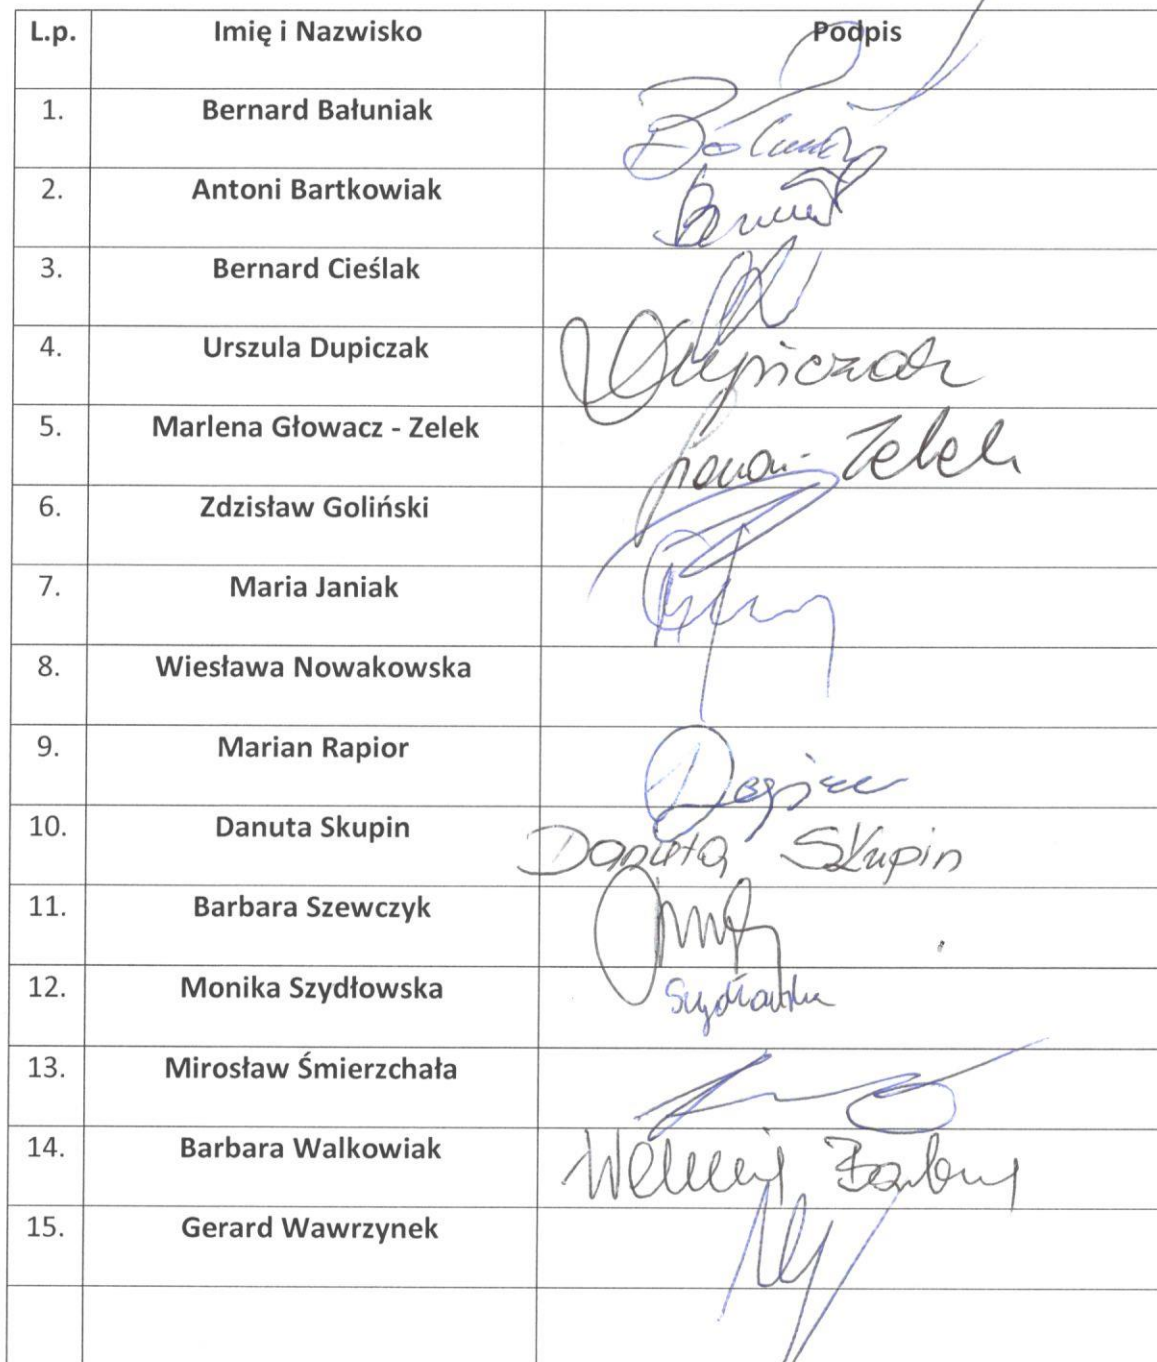 L.p. Imię i Nazwisko Podpis
1. Bernard Bałuniak
2. Antoni Bartkowiak
3. Bernard Cieślak
4. Urszula Dupiczak Dupiczak
5. Marlena Głowacz - Zelek Zelek
6. Zdzisław Goliński
7. Maria Janiak
8. Wiesława Nowakowska
9. Marian Rapior
10. Danuta Skupin Danuta Skupin
11. Barbara Szewczyk
12. Monika Szydłowska Szydłowska
13. Mirosław Śmierzchała
14. Barbara Walkowiak
15. Gerard Wawrzynek